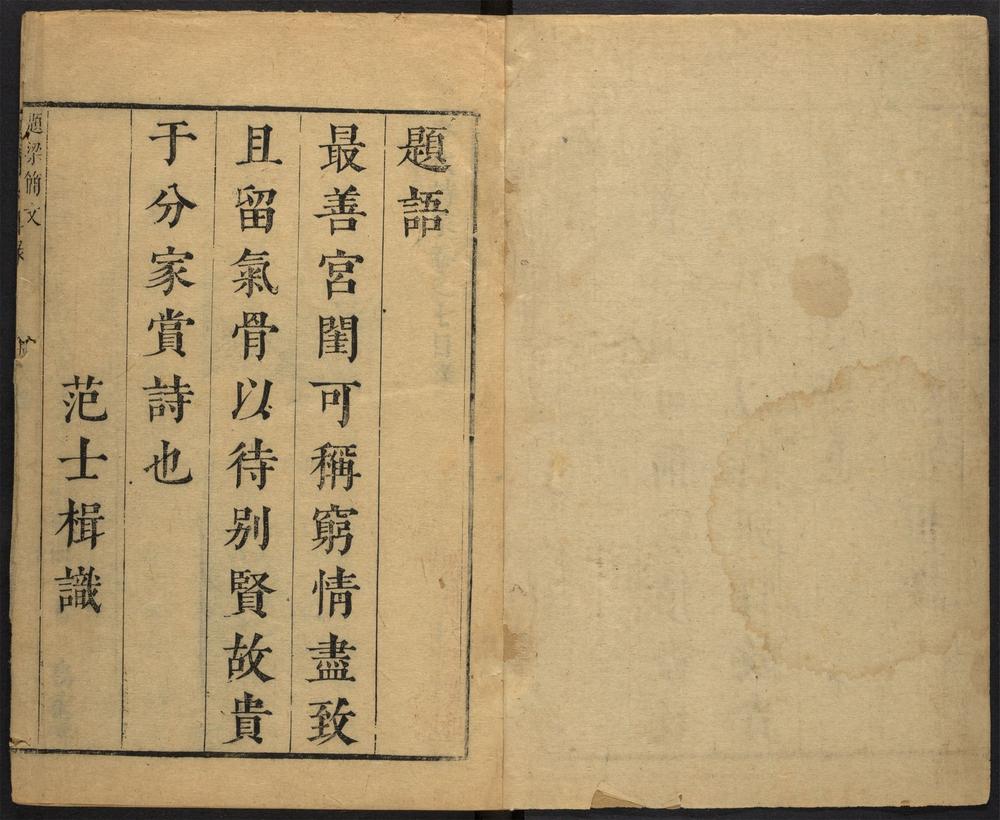 題語
最善宮閨可稱窮情盡致
且留氣骨以待别賢故貴
于分家賞詩也
范士楫識
題梁簡文